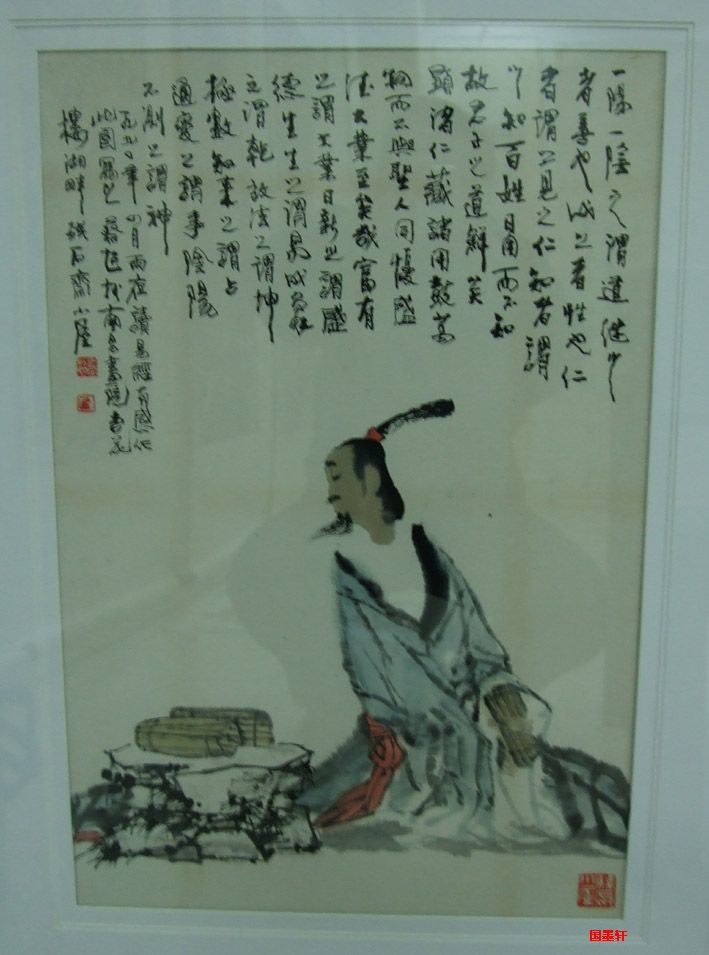 一陽一陰之谓道继之
者善也成之者性也仁
者謂之見之仁知者謂
之知百姓日用而不知
故君子之道鮮矣
顯诸仁藏諸用鼓萬
物而不與聖人同憂盛
德大業至矣哉富有
之謂大業日新之謂盛
德生生之謂易成象
之謂乾放法之謂坤
極數知來之謂占
通變之謂事陰陽
不測之謂神
一九九〇年月雨在讀易經有感作
此圖寫之於南昌畫院杏花
樓湖畔石齋小屋
国墨轩